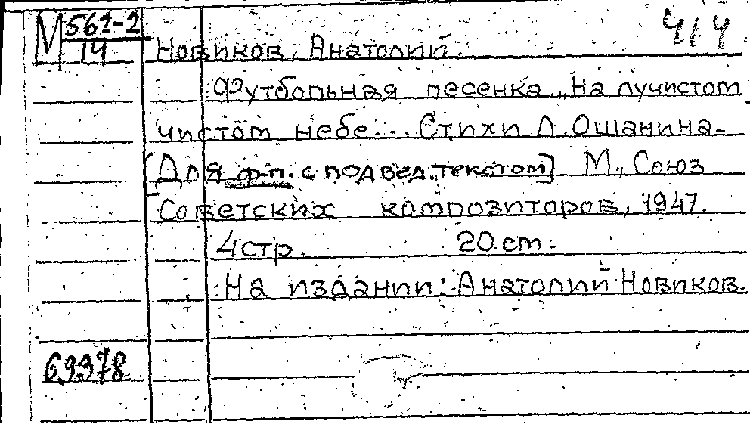 М 561-2
14
4/4
Новиков, Анатолий.
Футбольная песенка „На лучистом
чистом небе... Стихи Л. Ошанина.
[Для ф-п. с подвед. текстом] М., Союз
Советских композиторов, 1947.
4 стр. 20 cm.
На издании: Анатолий Новиков.
69978